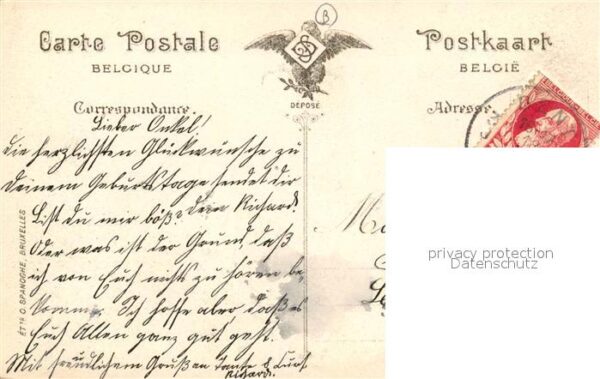 B
Carte Postale
BELGIQUE
Postkaart
BELGIË
DÉPOSÉ
Correspondance
Adresse
Lieber Onkel!
die herzlichsten Glückwünsche zu
Deinem Geburtstage sendet dir
Dein Richard.
Bist du mir böß?
Oder was ist der Grund, daß
ich von Euch nichts zu hören be-
komme. Ich hoffe aber daß es
Euch Allen ganz gut geht.
Mit freundlichem Gruß an Tante & Kurt
Richard.
ÉTTS O. SPANOGHE, BRUXELLES
privacy protection
Datenschutz